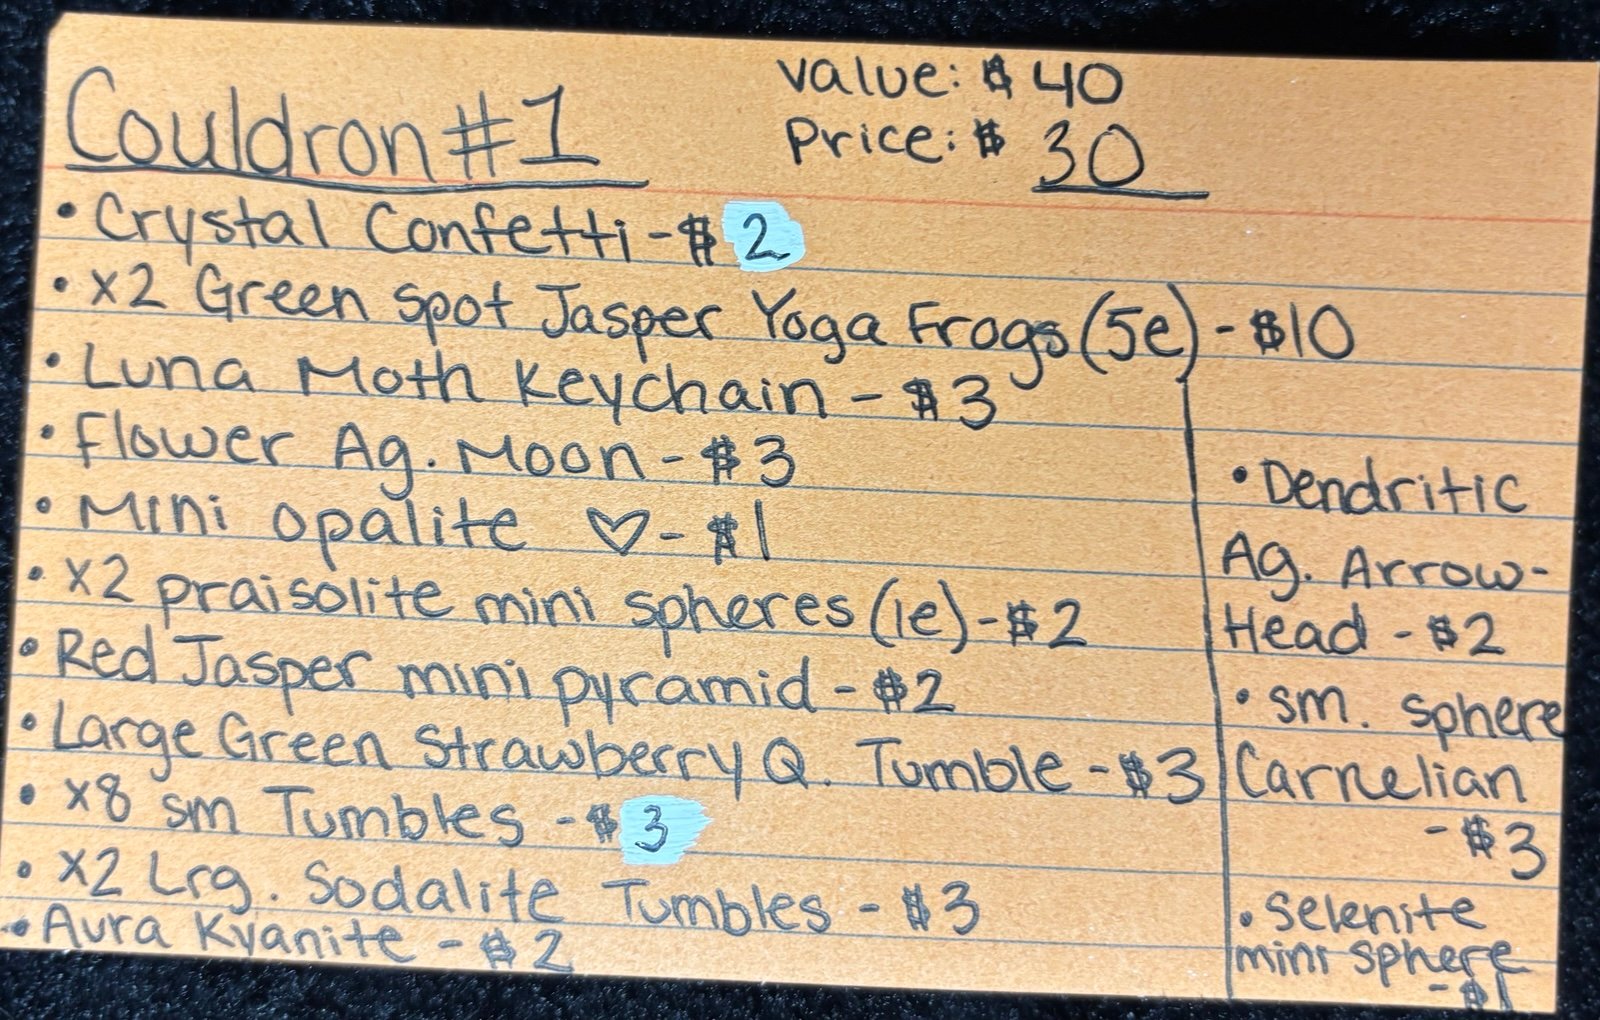 Couldron #1
Value: $40
Price: $ 30
• Crystal Confetti - $2
• x2 Green Spot Jasper Yoga Frogs (5e) - $10
• Luna Moth Keychain - $3
• Flower Ag. Moon - $3
• Mini opalite ♡ - $1
• x2 praisolite mini spheres (1e) - $2
• Red Jasper mini pyramid - $2
• Large Green Strawberry Q. Tumble - $3
• x8 sm Tumbles - $3
• x2 Lrg. Sodalite Tumbles - $3
• Aura Kyanite - $2
• Dendritic
Ag. Arrow-
Head - $2
• sm. sphere
Carnelian
- $3
• Selenite
mini sphere
- $1